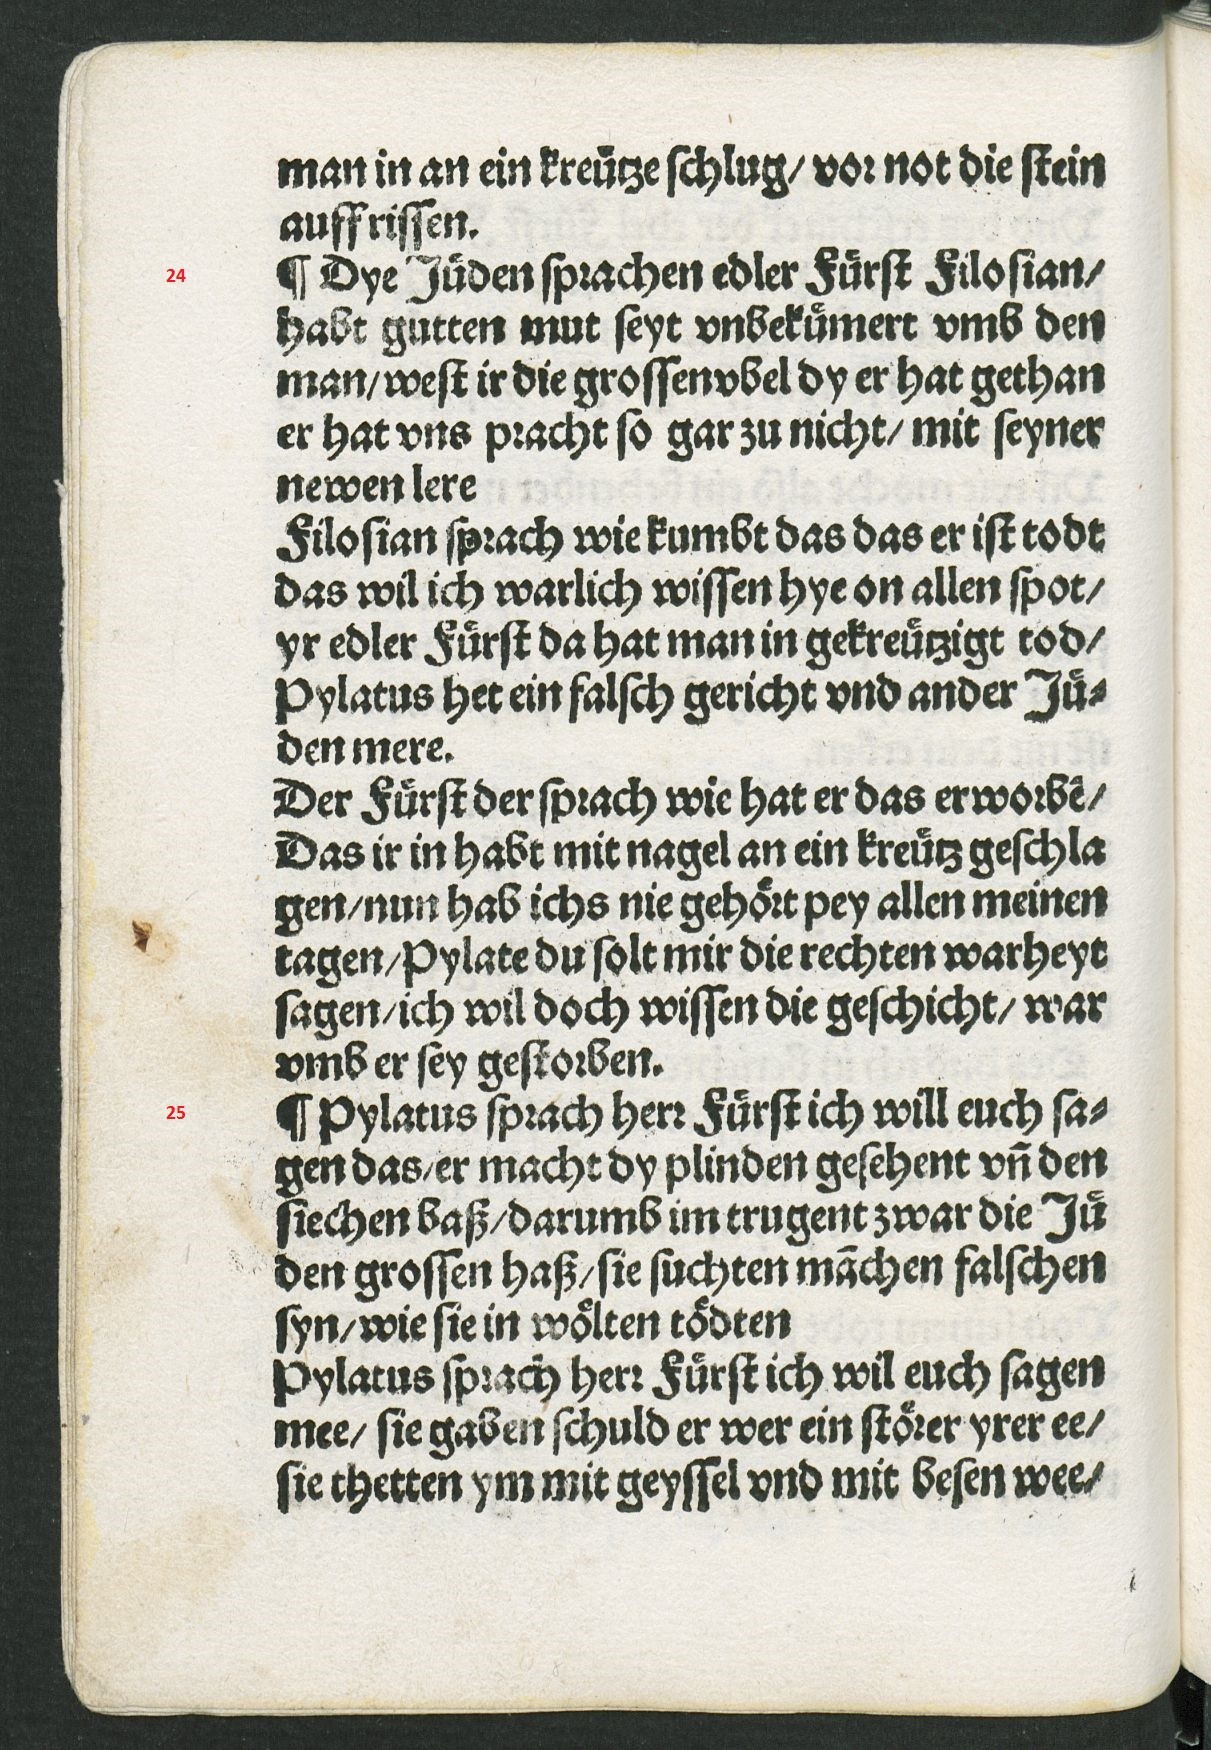 man in an ein kreuͤtze ſchlug/ vor not die ſtein
auff riſſen.
24
¶ Dye Juͤden ſprachen edler Fuͤrſt Filoſian/
habt gutten mut ſeyt vnbekuͤmert vmb den
man/ weſt ir die groſſen vbel dy er hat gethan
er hat vns pracht ſo gar zu nicht/ mit ſeyner
newen lere
Filoſian ſprach wie kumbt das das er iſt todt
das wil ich warlich wiſſen hye on allen ſpot/
yr edler Fuͤrſt da hat man in gekreuͤtzigt tod/
Pylatus het ein falſch gericht vnd ander Juͤ⸗
den mere.
Der Fuͤrſt der ſprach wie hat er das erworbē/
Das ir in habt mit nagel an ein kreuͤtz geſchla
gen/ nun hab ichs nie gehoͤrt pey allen meinen
tagen/ Pylate du ſolt mir die rechten warheyt
ſagen/ ich wil doch wiſſen die geſchicht/ war
vmb er ſey geſtorben.
25
¶ Pylatus ſprach herr Fuͤrſt ich will euch ſa⸗
gen das/ er macht dy plinden geſehent vn̄ den
ſiechen baß/ darumb im trugent zwar die Juͤ
den groſſen haß/ ſie ſuchten māchen falſchen
ſyn/ wie ſie in woͤlten toͤdten
Pylatus ſprach herr Fuͤrſt ich wil euch ſagen
mee/ ſie gaben ſchuld er wer ein ſtoͤrer yrer ee/
ſie thetten ym mit geyſſel vnd mit beſen wee/